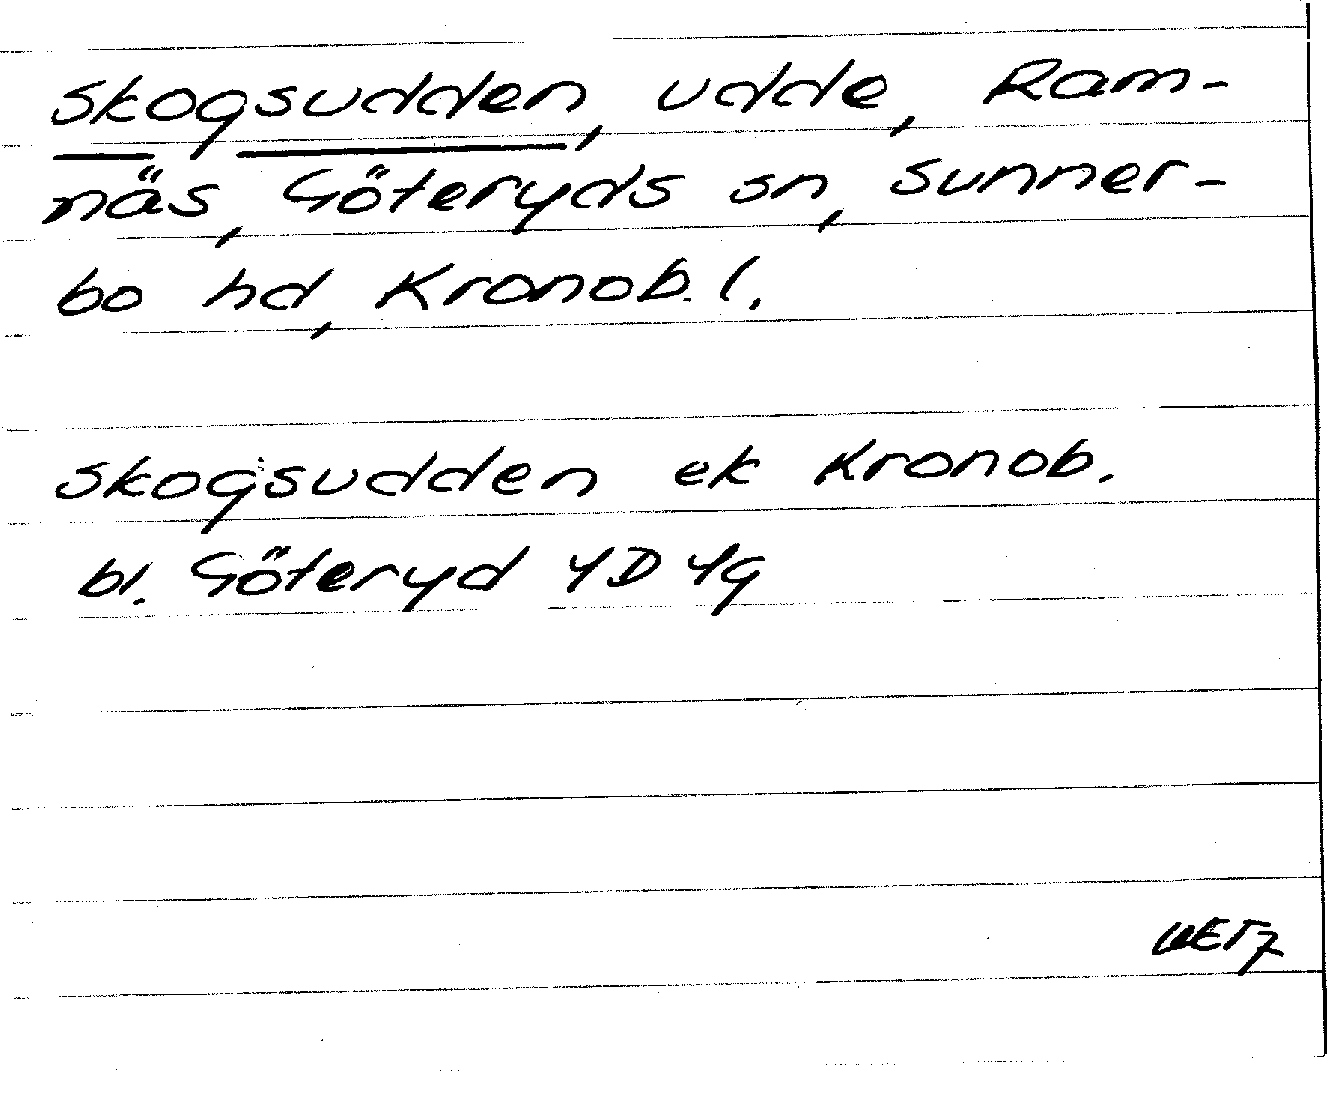 Skogsudden, udde, Ram-
näs, Göteryds sn, Sunner-
bo hd, Kronob. l.
Skogsudden ek Kronob.
bl. Göteryd 4D 4g